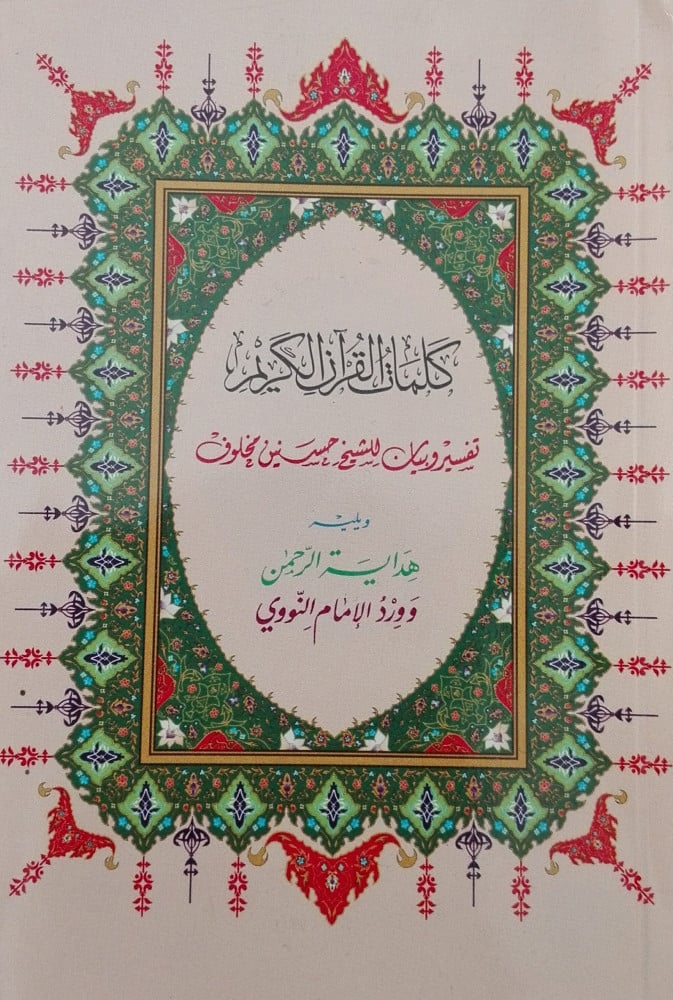 كلمات القرآن الكريم
تفسير وبيان للشيخ حسنين مخلوف
ويليه
هداية الرحمٰن
وورد الإمام النووي